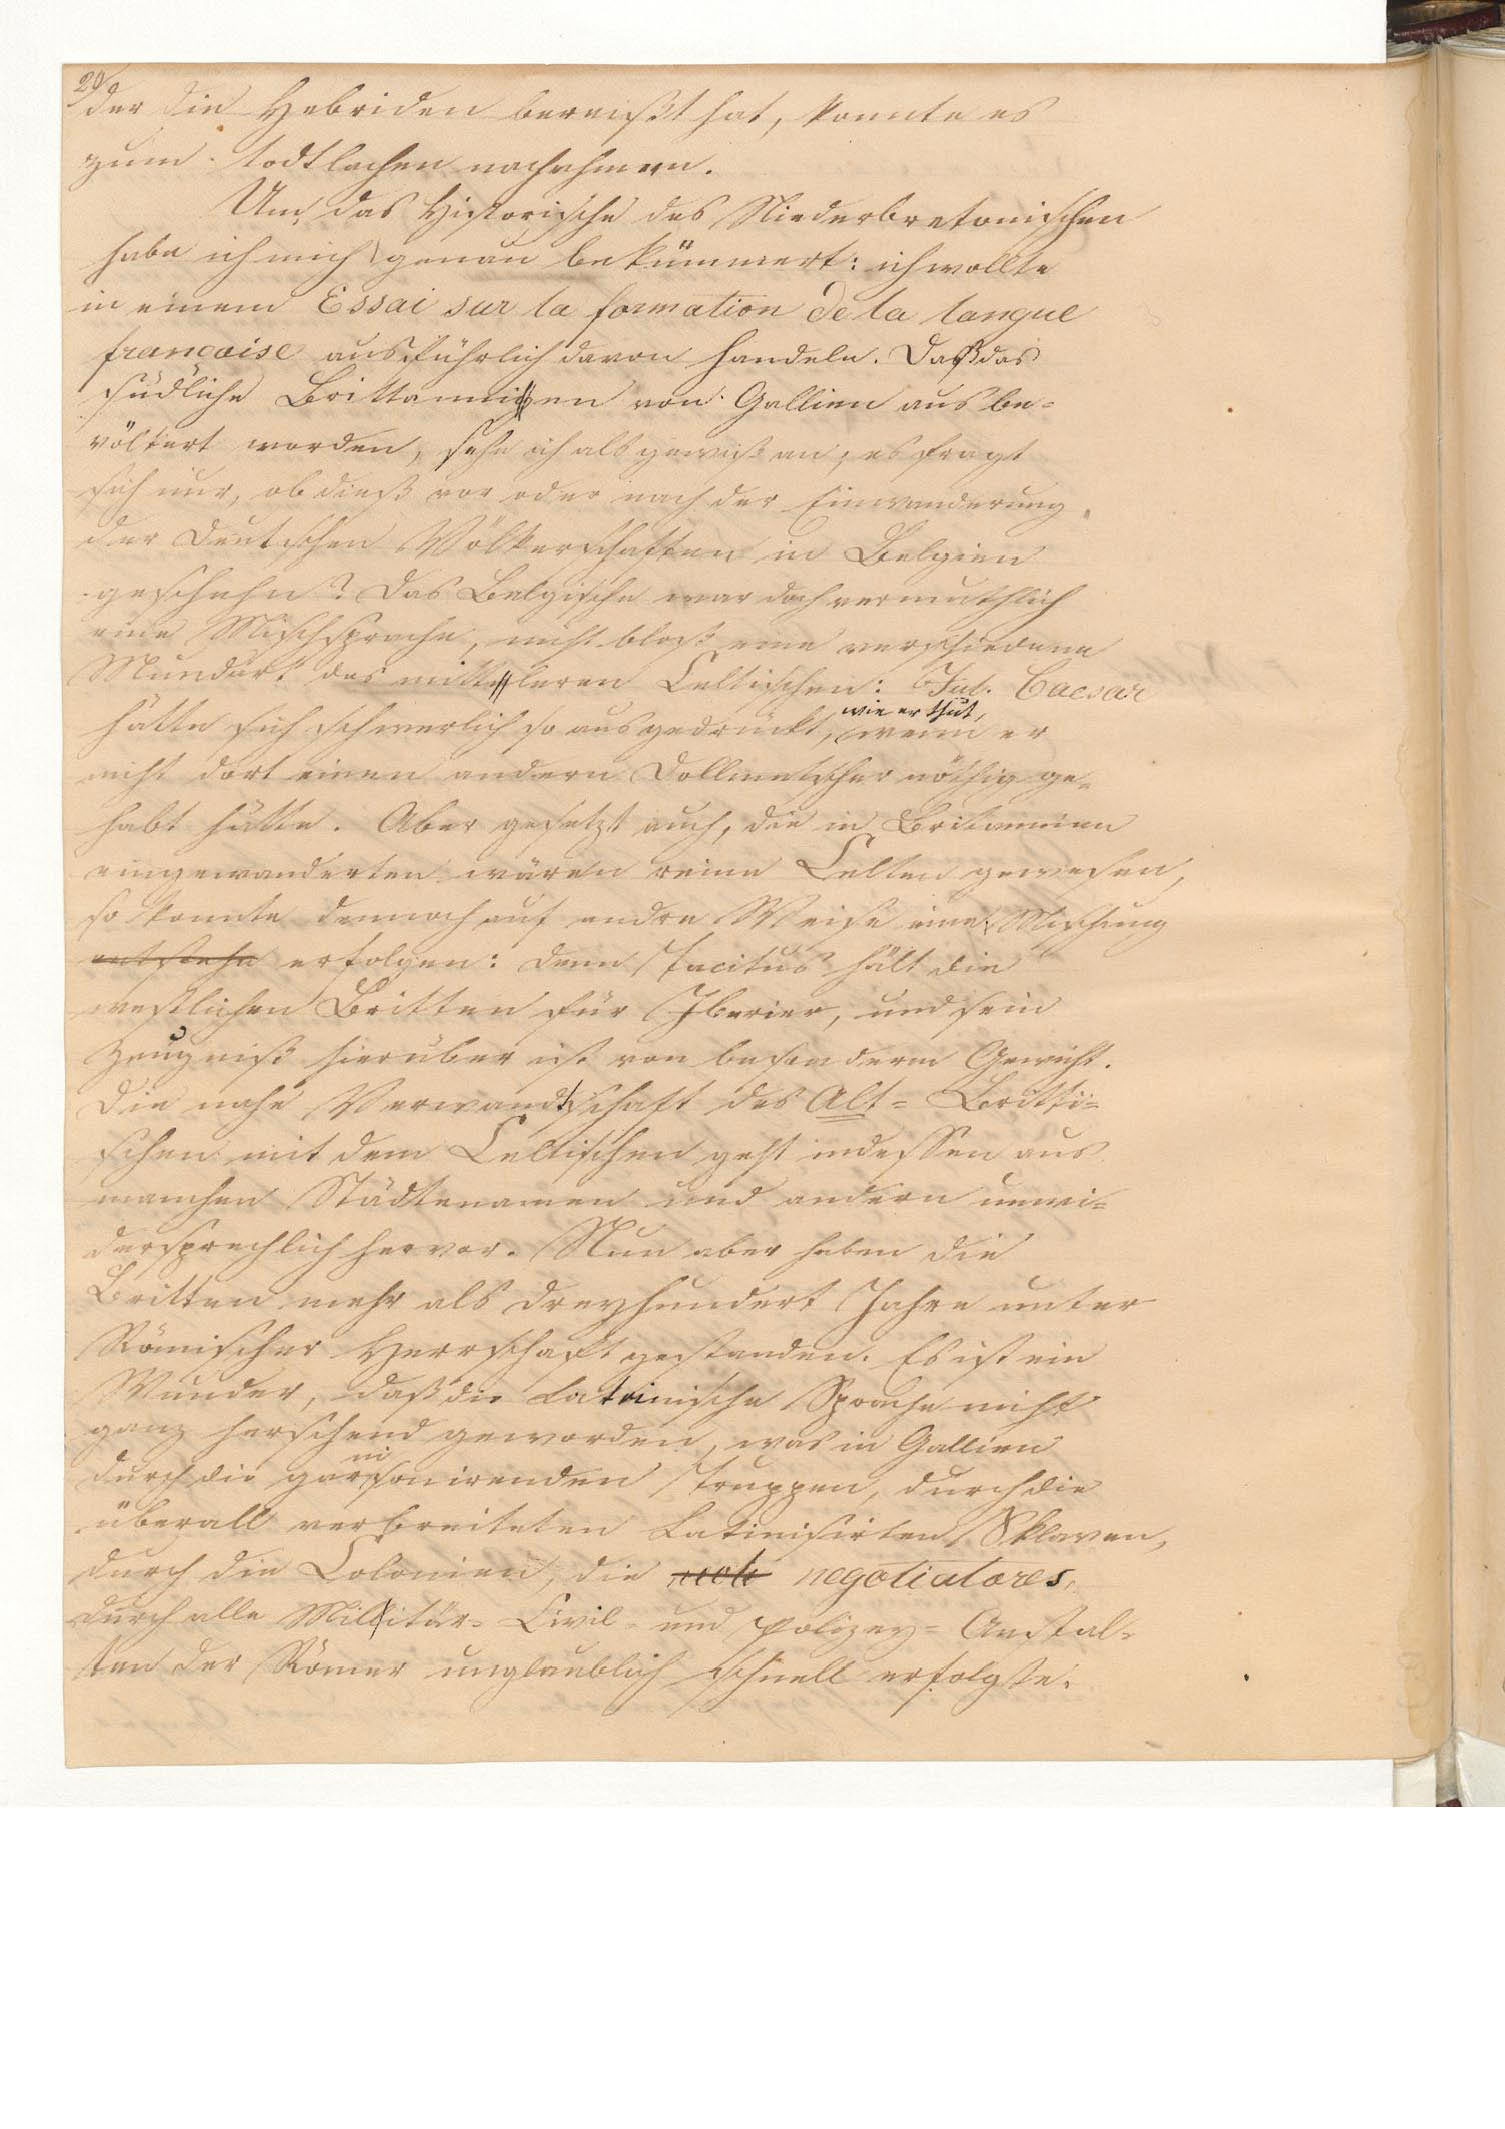 20/
der die Hebriden bereißt hat, konnte es
zum todtlachen nachahmen.
Um das Historische des Niederbretonischen
habe ich mich genau bekümmert: ich wollte
in einem Essai sur la formation de la langue
francaise ausführlich davon handeln. Daß das
südliche Brittannien von Gallien aus be-
völkert worden, sehe ich als gewiß an; es fragt
sich nur, ob dieß vor oder nach der Einwanderung
der Deutschen Völkerschaften in Belgien
geschehn? Das Belgische war doch vermuthlich
eine Mischsprache, nicht bloß eine verschiedene
Mundart des mittleren Celtischen: Jul. Caesar
hätte sich schwerlich so ausgedrückt, wie er thut, wenn er
nicht dort einen andern Dollmetscher nöthig ge-
habt hätte. Aber gesetzt auch, die in Britannien
eingewanderten wären reine Celten gewesen,
so konnte dennoch auf andre Weise eine Mischung
entstehn erfolgen: denn Tacitus hält die
westlichen Britten für Iberier, und sein
Zeugniß hierüber ist von besonderm Gewicht.
Die nahe Verwandschaft des Alt-Britti-
schen mit dem Celtischen geht indessen aus
manchen Städtenamen und andern unwi-
dersprechlich hervor. Nun aber haben die
Britten mehr als dreyhundert Jahre unter
Römischer Herrschaft gestanden. Es ist ein
Wunder, daß die Lateinische Sprache nicht
ganz herschend geworden, was in Gallien
durch die garnisonirenden Truppen, durch die
überall verbreiteten Latinisirten Sklaven,
durch die Colonien, die negotiatores,
durch alle Militär- Civil- und Polizey-Anstal-
ten der Römer unglaublich schnell erfolgte.